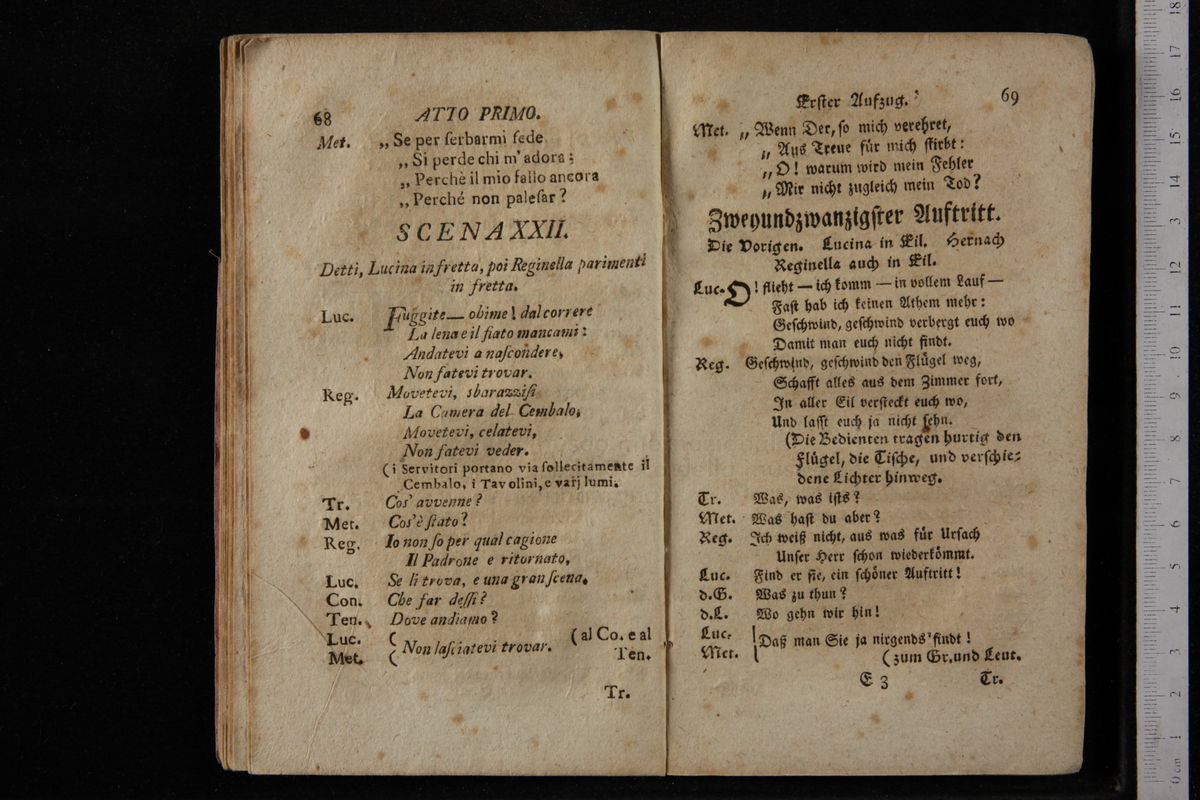 68 ATTO PRIMO.
Met. „ Se per ſerbarmi fede
„ Si perde chi m' adora ;
„ Perchè il mio fallo ancora
„ Perché non paleſar ?
SCENA XXII.
Detti, Lucina in fretta, poi Reginella parimenti
in fretta.
Luc. Fuggite — obime ! dal correre
La lena e il fiato mancami :
Andatevi a naſcondere,
Non fatevi trovar.
Reg. Movetevi, sbarazziſi
La Camera del Cembalo,
Movetevi, celatevi,
Non fatevi veder.
( i Servitori portano via ſollecitamente il
Cembalo, i Tavolini, e varj lumi.
Tr. Cos' avvenne ?
Met. Cos' è ſtato ?
Reg. Io non ſo per qual cagione
Il Padrone e ritornato,
Luc. Se li trova, e una gran ſcena.
Con. Che far deſſi ?
Ten. Dove andiamo ?
Luc. ( ( al Co. e al
Met. ( Non laſciatevi trovar. Ten.
Tr.
Erſter Aufzug. 69
Met. „ Wenn Der, ſo mich verehret,
„ Aus Treue für mich ſtirbt :
„ O ! warum wird mein Fehler
„ Mir nicht zugleich mein Tod ?
Zweyundzwanzigſter Auftritt.
Die Vorigen. Lucina in Eil. Hernach
Reginella auch in Eil.
Luc. O ! flieht — ich komm — in vollem Lauf —
Faſt hab ich keinen Athem mehr :
Geſchwind, geſchwind verbergt euch wo
Damit man euch nicht findt.
Reg. Geſchwind, geſchwind den Flügel weg,
Schafft alles aus dem Zimmer fort,
In aller Eil verſteckt euch wo,
Und laſſt euch ja nicht ſehn.
(Die Bedienten tragen hurtig den
Flügel, die Tiſche, und verſchie⸗
dene Lichter hinweg.
Tr. Was, was iſts ?
Met. Was haſt du aber ?
Reg. Ich weiß nicht, aus was für Urſach
Unſer Herr ſchon wiederkömmt.
Luc. Find er ſie, ein ſchöner Auftritt !
d.G. Was zu thun ?
d.L. Wo gehn wir hin !
Luc.
Met. Daß man Sie ja nirgends findt !
( zum Gr. und Leut.
E 3 Tr.
0 cm 1 2 3 4 5 6 7 8 9 10 11 12 13 14 15 16 17 18